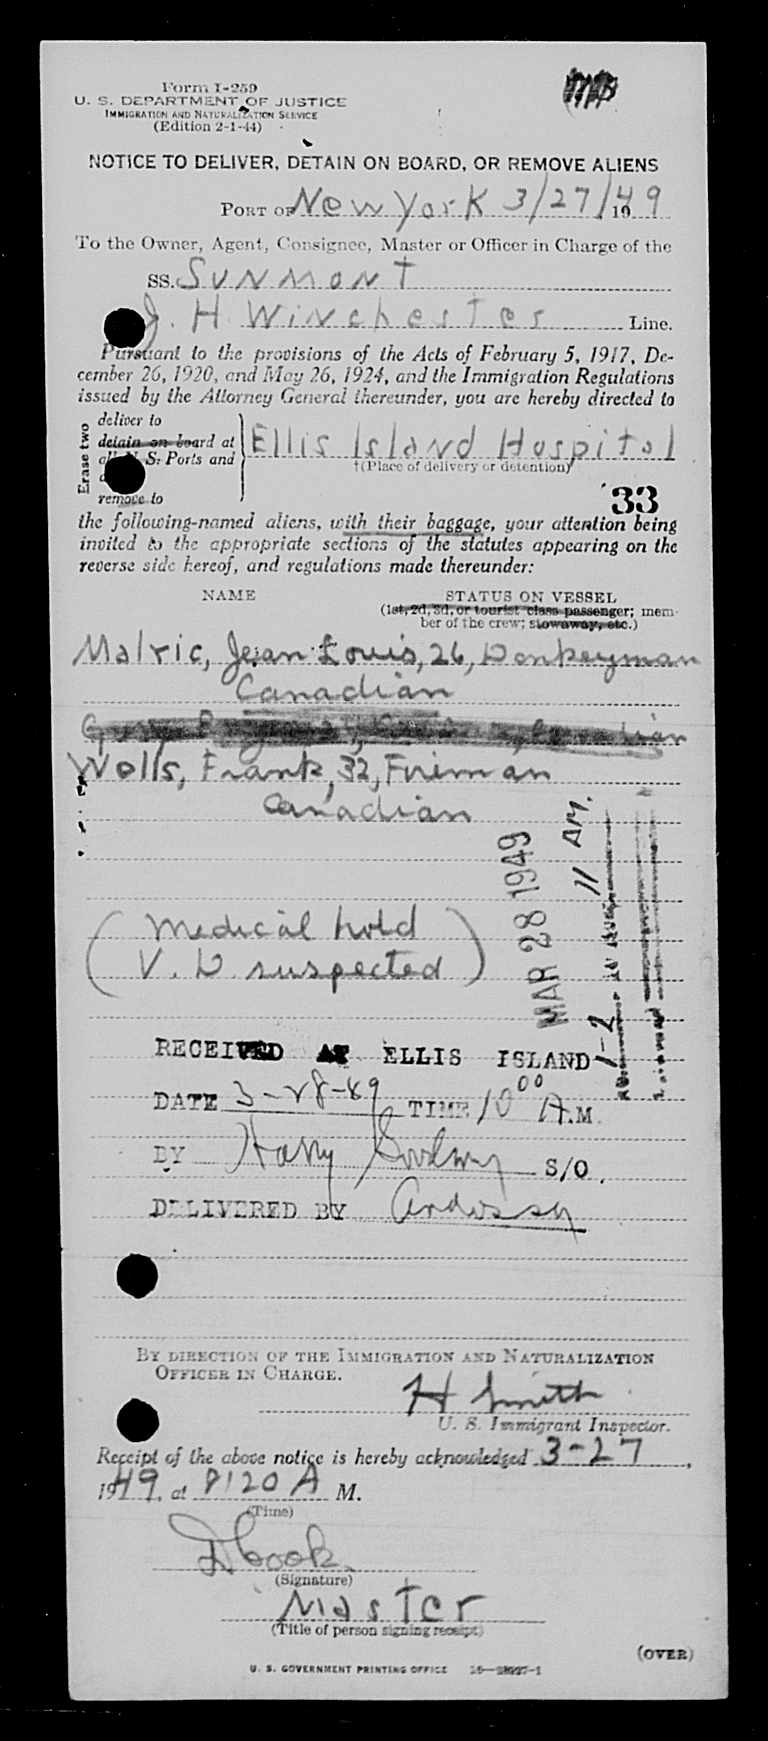 Form I-259
U. S. DEPARTMENT OF JUSTICE
IMMIGRATION AND NATURALIZATION SERVICE
(Edition 2-1-44)
NOTICE TO DELIVER, DETAIN ON BOARD, OR REMOVE ALIENS
PORT OF New York 3/27/1949
To the Owner, Agent, Consignee, Master or Officer in Charge of the
SS. Sunmont
J. H. Winchester Line.
Pursuant to the provisions of the Acts of February 5, 1917, De-
cember 26, 1920, and May 26, 1924, and the Immigration Regulations
issued by the Attorney General thereunder, you are hereby directed to
Erase two
deliver to
detain on board at
all U. S. Ports and
remove to
Ellis Island Hospital
†(Place of delivery or detention)
33
the following-named aliens, with their baggage, your attention being
invited to the appropriate sections of the statutes appearing on the
reverse side hereof, and regulations made thereunder:
NAME STATUS ON VESSEL
(1st, 2d, 3d, or tourist class passenger; mem-
ber of the crew; stowaway, etc.)
Malric, Jean Louis, 26, Donkeyman
Canadian
Wells, Frank, 32, Fireman
Canadian
11 AM.
MAR 28 1949
(Medical hold
V. D. suspected)
RECEIVED AT ELLIS ISLAND 1-2
DATE 3-28-49 TIME 10 00 A.M
BY Harry S/O.
DELIVERED BY
BY DIRECTION OF THE IMMIGRATION AND NATURALIZATION
OFFICER IN CHARGE.
H Smith
U. S. Immigrant Inspector.
Receipt of the above notice is hereby acknowledged 3-27,
1949, at 8120 A M.
(Time)
D Cook
(Signature)
Master
(Title of person signing receipt)
(OVER)
U. S. GOVERNMENT PRINTING OFFICE